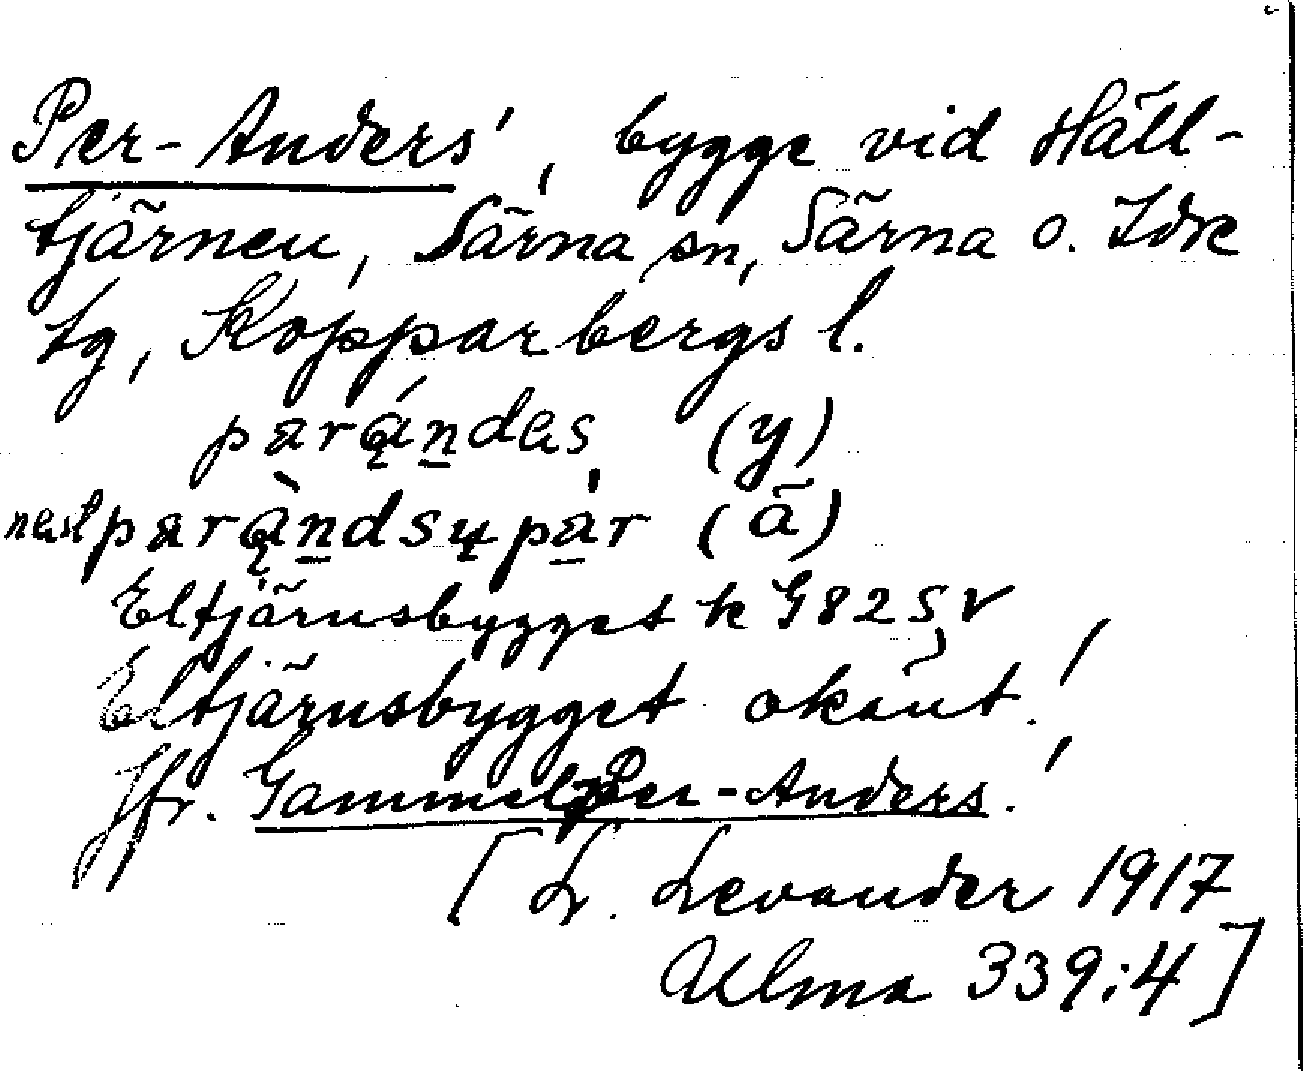 Per-Anders', bygge vid Häll-
tjärnen, Särna sn, Särna o. Idre
tg, Kopparbergs l.
parándas (y)
paràndsupár (ä)
Eltjärnsbygget k G82SV
Eltjärnsbygget okänt!
Jfr. Gammel Per-Anders'.
[L. Levander 1917
Ulma 339:4]